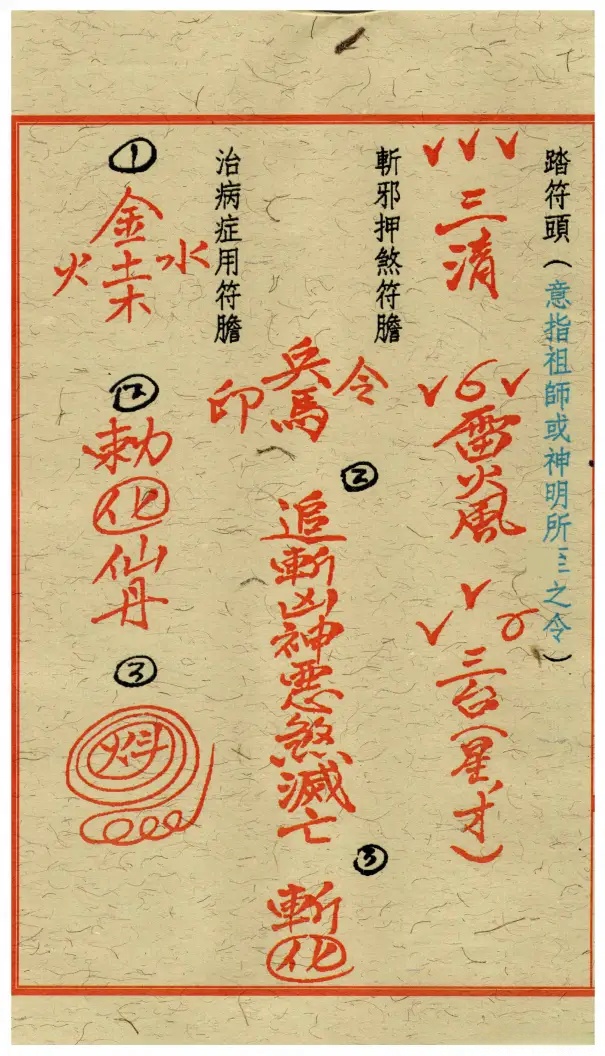 踏符頭（意指祖師或神明所之令）
三清
雷火風
三台（星、才）
斬邪押煞符膽
令
兵馬
印
②
追斬凶神悪煞滅亡
③
斬化
治病症用符膽
①
金
水
土
火
木
②
勅化仙丹
③